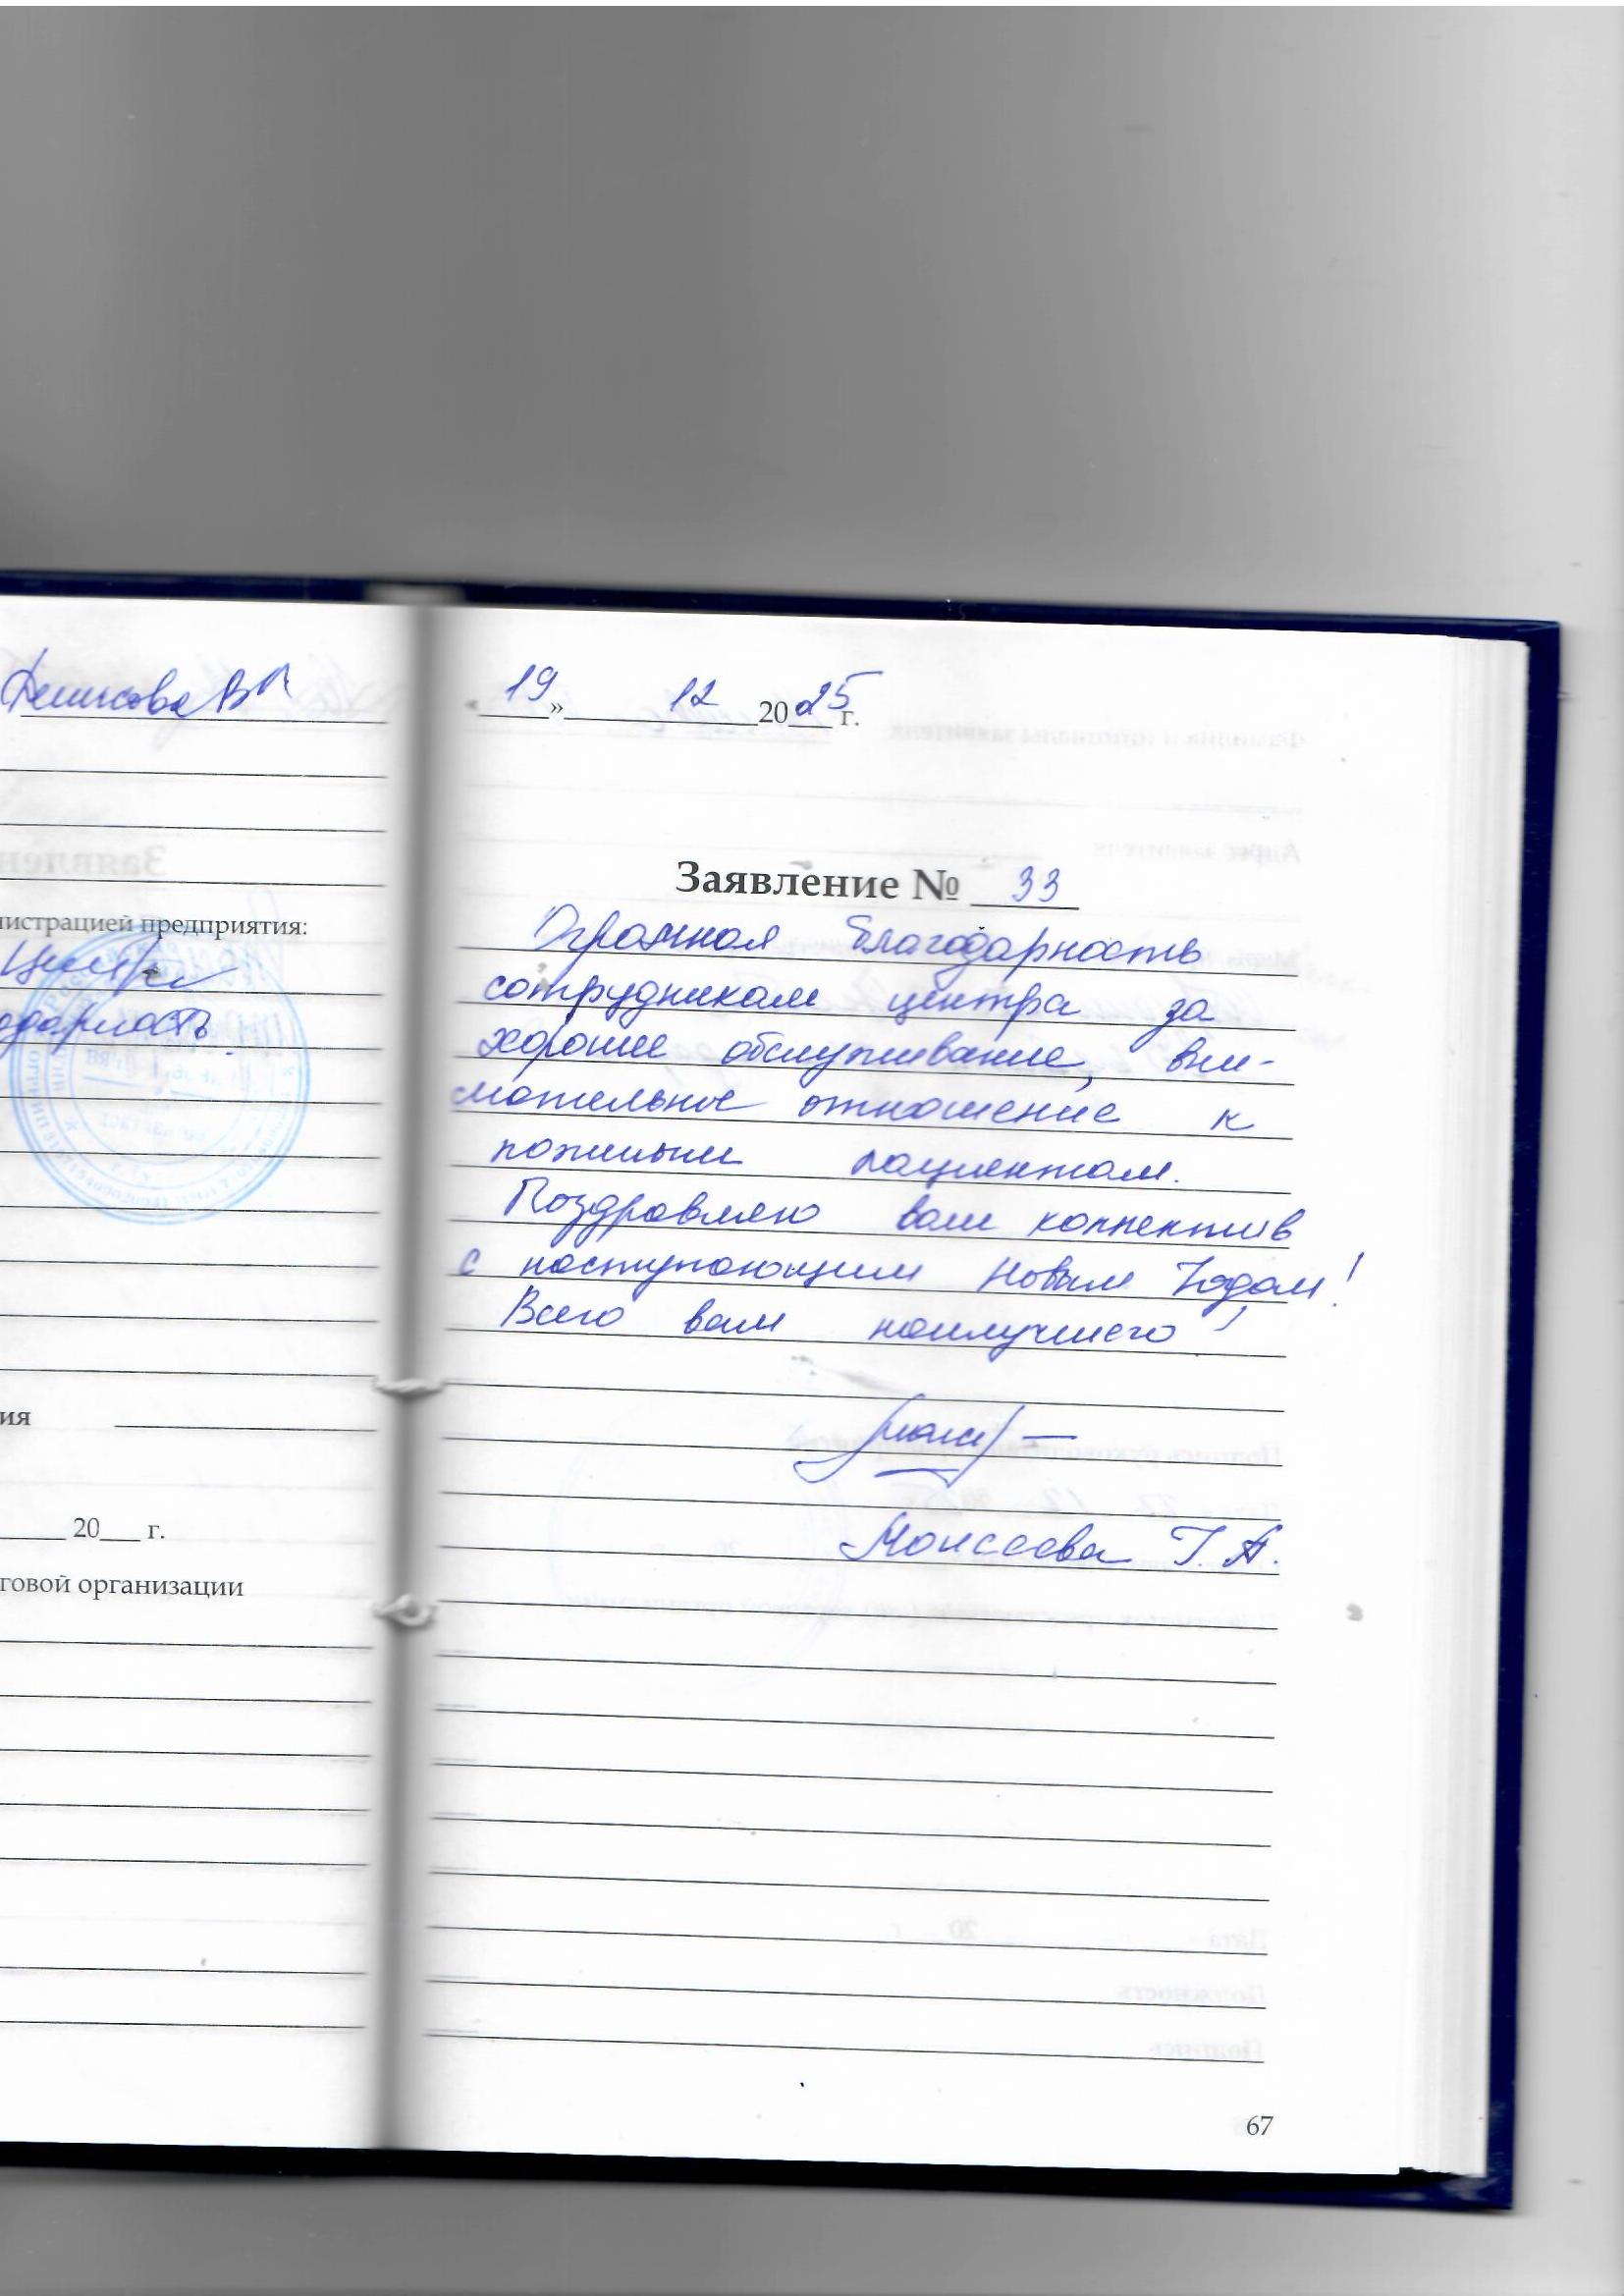 Денисова В
нистрацией предприятия:
одарность
ия
20 г.
говой организации
«19» 12 2025 г.
Заявление № 33
Огромная благодарность
сотрудникам центра за
хорошее обслуживание, вни-
мательное отношение к
пожилым пациентам.
Поздравляю ваш коллектив
с наступающим Новым Годом!
Всего вам наилучшего!
Моисеева Г. А.
67